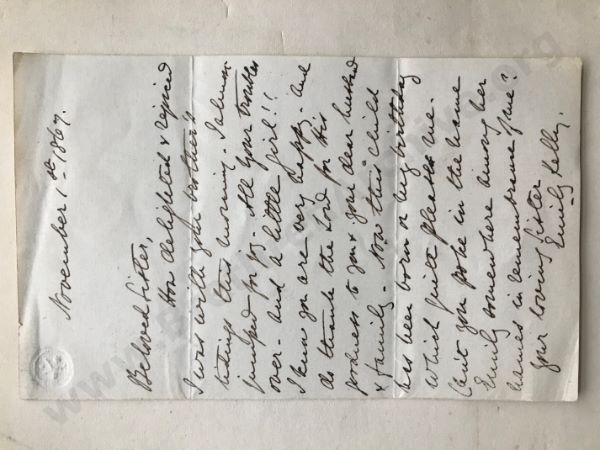 November 1st 1867.
Beloved Sister,
How delighted & rejoiced
I was with your brother's
tidings this morning. I almost
jumped for joy. All your troubles
over. and a little girl!!
I know you are very happy. and
do thank the Lord for his
goodness to you & your dear husband
& family. Now this child
has been born on my birthday
which quite pleases me.
Can't you poke in the name
Emily somewhere among her
names in remembrance of me?
Your loving Sister
Emily Kelly.